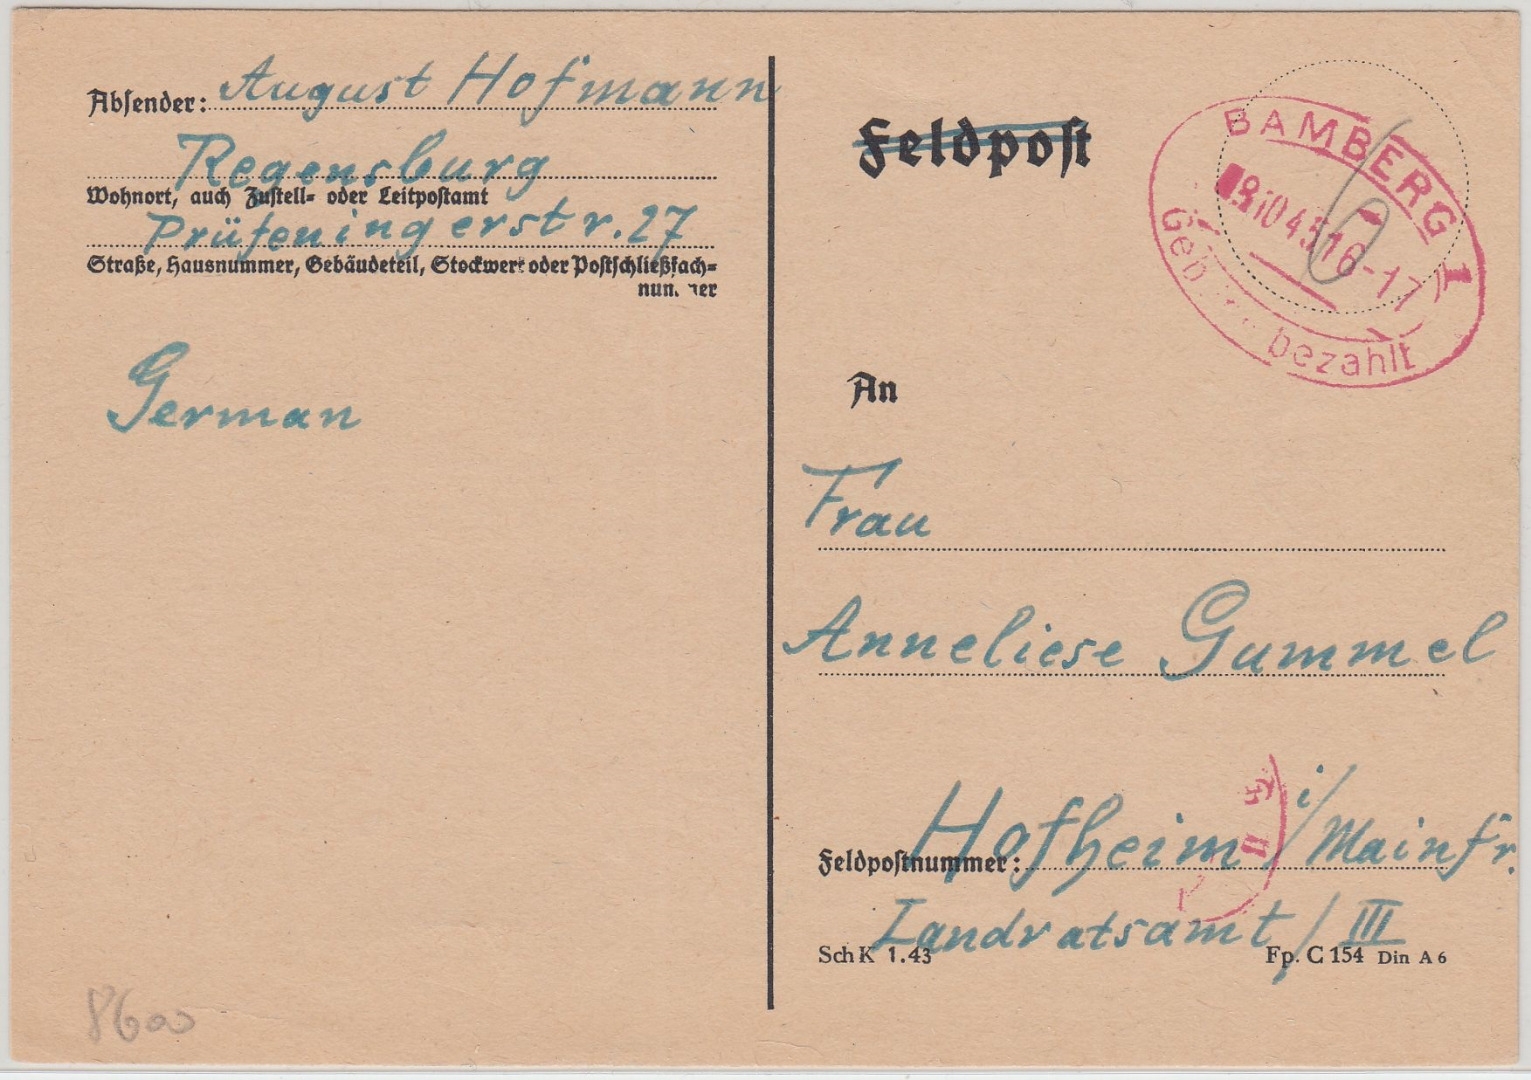 Absender: August Hofmann
Regensburg
Wohnort, auch Zustell- oder Leitpostamt
Prüfeningerstr. 27
Straße, Hausnummer, Gebäudeteil, Stockwerk oder Postschließfach-
nummer
German
Feldpost
BAMBERG 1
10 45 16-17
bezahlt
An
Frau
Anneliese Gummel
Feldpostnummer: Hofheim i/Mainfr.
Landratsamt / III
SchK 1.43
Fp. C 154 Din A 6
8600